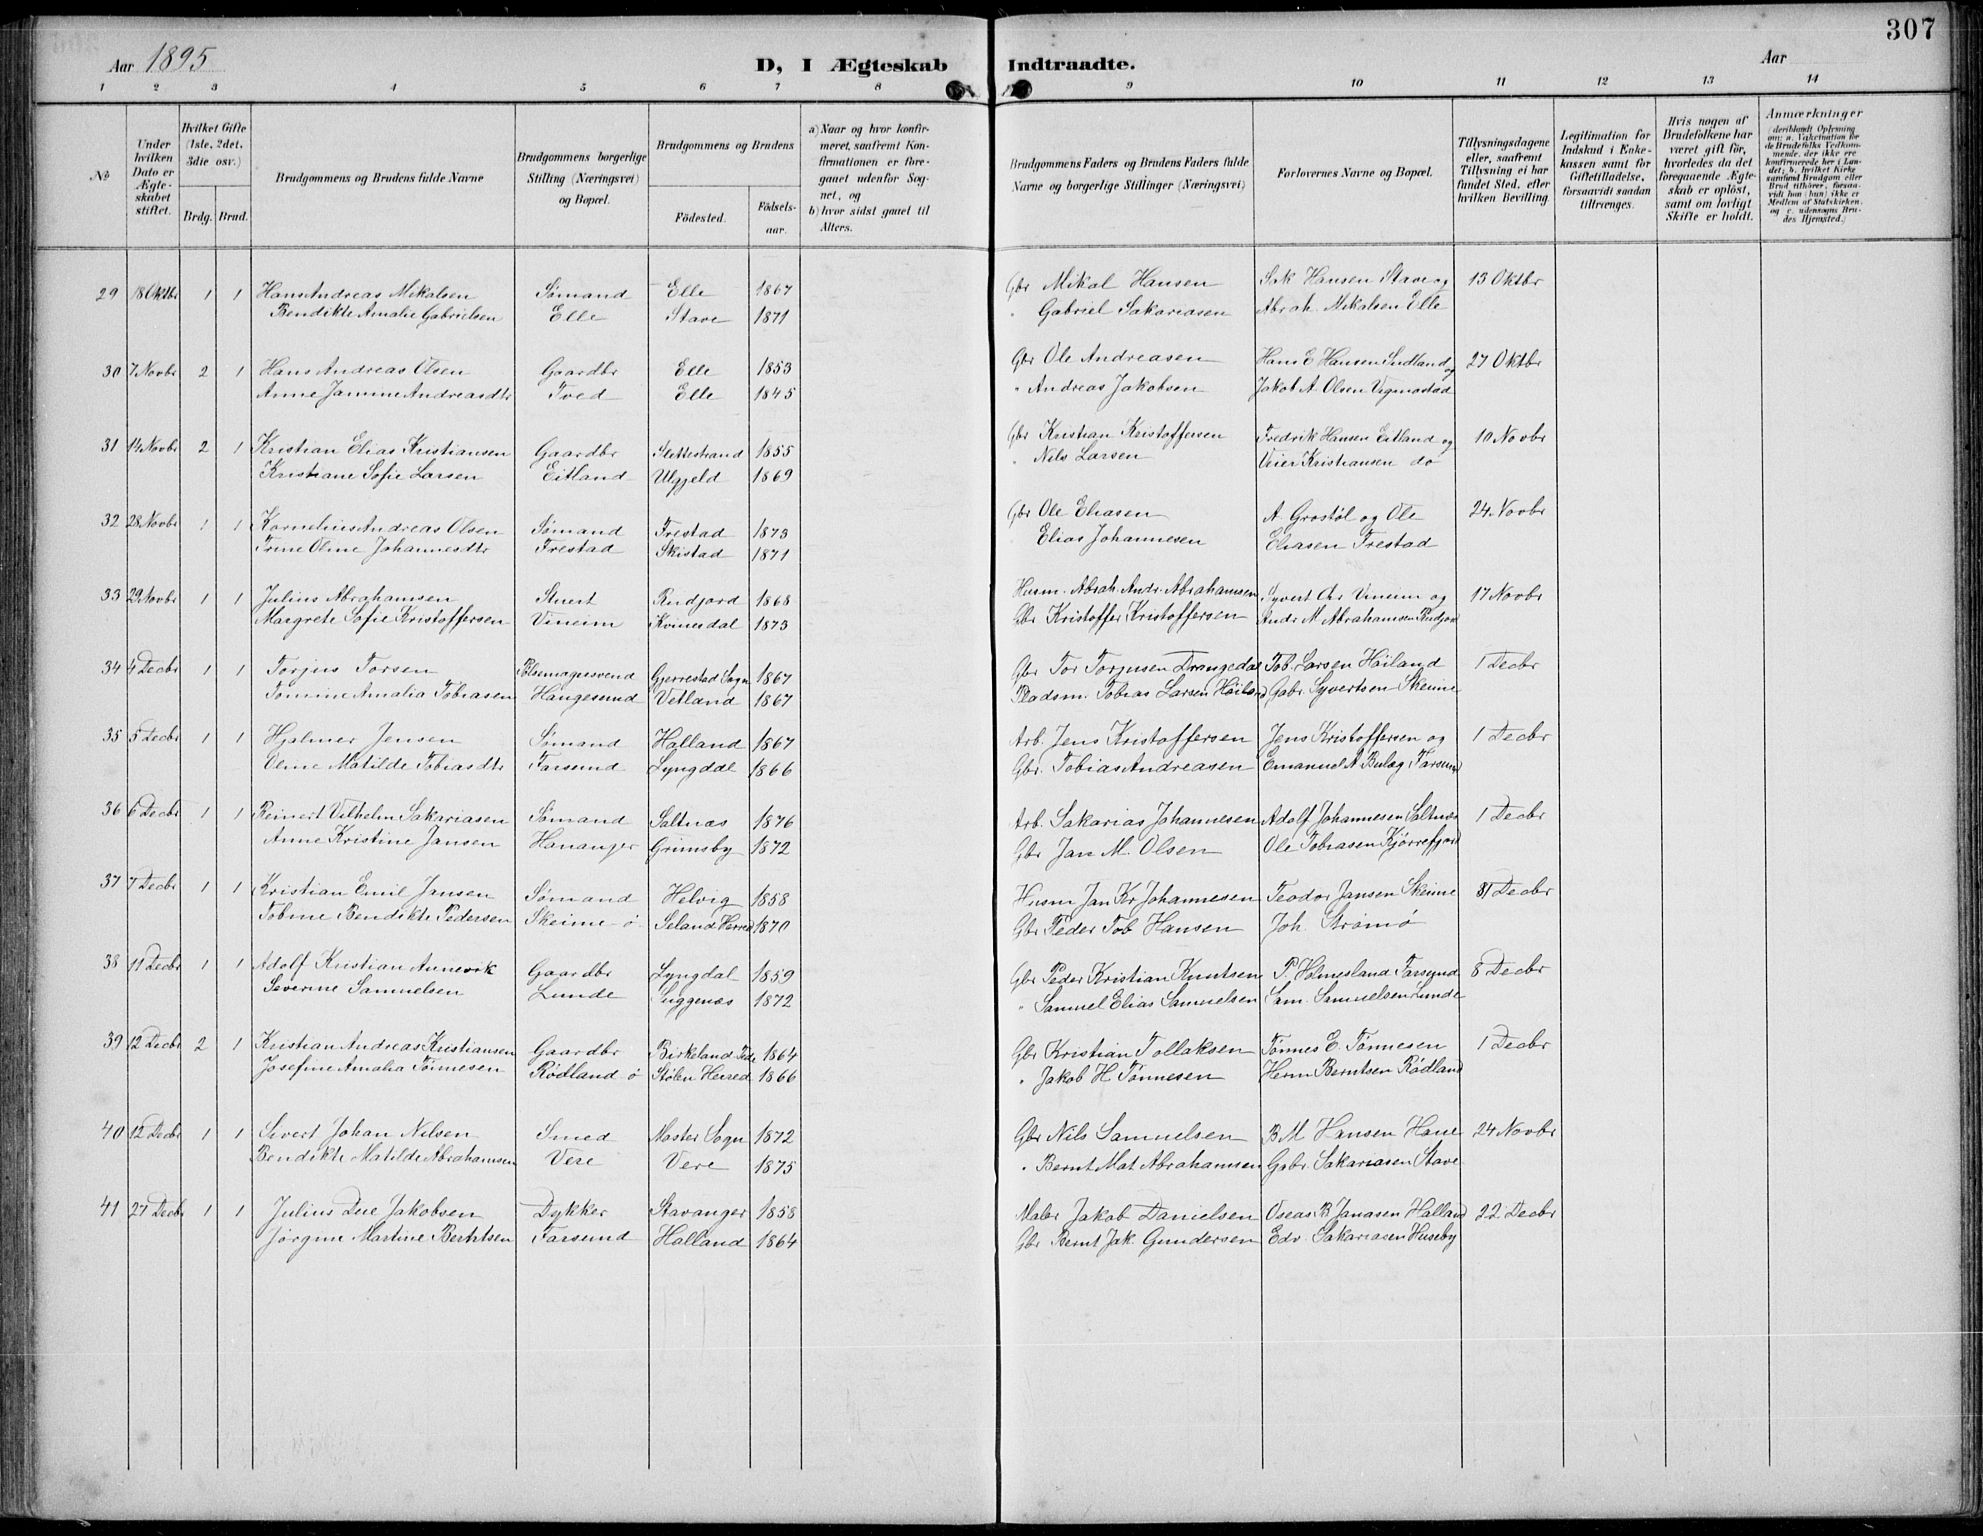 307
Aar 1895
D, I Ægteskab Indtraadte.
Aar
1 2 3 4 5 6 7 8 9 10 11 12 13 14
No
Under hvilken Dato er Ægteskabet stiftet.
Hvilket Gifte (1ste, 2det, 3die osv.)
Brdg. Brud.
Brudgommens og Brudens fulde Navne
Brudgommens borgerlige Stilling (Næringsvei) og Bopæl.
Brudgommens og Brudens
Födested.
Födselsaar.
a) Naar og hvor konfirmeret, saafremt Konfirmationen er foregaaet udenfor Sognet, og
b) hvor sidst gaaet til Alters.
Brudgommens Faders og Brudens Faders fulde Navne og borgerlige Stillinger (Næringsvei)
Forlovernes Navne og Bopæl.
Tillysningsdagene eller, saafremt Tillysning ei har fundet Sted, efter hvilken Bevilling.
Legitimation for Indskud i Enkekassen samt for Giftetilladelse, forsaavidt saadan tiltrænges.
Hvis nogen af Brudefolkene har været gift før, hvorledes da det foregaaende Ægteskab er opløst, samt om lovligt Skifte er holdt.
Anmærkninger
29 18 Oktbr 1 1 Hans Andreas Mikalsen Sømand Elle 1867 Gbr Mikal Hansen Sak Hansen Stave og 13 Oktbr
Bendikte Amalie Gabrielsen Elle Stave 1871 " Gabriel Sakariasen Abrah. Mikalsen Elle
30 7 Novbr 2 1 Hans Andreas Olsen Gaardbr Elle 1853 Gbr Ole Andreasen Hans E Hansen Sudland og 27 Oktbr
Anne Jamine Andreasdtr Tved Elle 1845 " Andreas Jakobsen Jakob A. Olsen Vigmostad
31 14 Novbr 2 1 Kristian Elias Kristiansen Gaardbr Slettestrand 1855 Gbr Kristian Kristoffersen Fredrik Hansen Eitland og 10 Novbr
Kristiane Sofie Larsen Eitland Ulgjeld 1869 " Nils Larsen Veier Kristiansen do
32 28 Novbr 1 1 Kornelius Andreas Olsen Sømand Frestad 1873 Gbr Ole Eliasen A. Grostöl og Ole 24 Novbr
Trine Oline Johannesdtr Frestad Skistad 1871 Elias Johannesen Eliasen Frestad
33 29 Novbr 1 1 Julius Abrahamsen Stuert Rudjord 1868 Husm. Abrah. Andr. Abrahamsen Syvert Chr Vineim og 17 Novbr
Margrete Sofie Kristoffersen Vineim Kvinesdal 1873 Gbr Kristoffer Kristoffersen Andr M Abrahamsen Rudjord
34 4 Decbr 1 1 Torjus Torsen Pølsemagersvend Gjerrestad Sogn 1867 Gbr Tor Torjusen Drangedal Tob. Larsen Höiland 1 Decbr
Tomine Amalia Tobiasen Haugesund Vetland 1867 Pladsm. Tobias Larsen Höiland Gabr. Syvertsen Skeime
35 5 Decbr 1 1 Hjalmer Jensen Sømand Halland 1867 Arb. Jens Kristoffersen Jens Kristoffersen og 1 Decbr
Oline Matilde Tobiasdtr Farsund Lyngdal 1866 Gbr. Tobias Andreasen Emanuel A Bulag Farsund
36 6 Decbr 1 1 Reinert Vilhelm Sakariasen Sømand Saltnæs 1876 Arb. Sakarias Johannesen Adolf Johannesen Saltnæs 1 Decbr
Anne Kristine Jansen Hananger Grimsby 1872 Gbr Jan M. Olsen Ole Tobiasen Kjørrefjord
37 7 Decbr 1 1 Kristian Emil Jansen Sømand Helvig 1858 Husm Jan Kr Johannesen Teodor Jansen Skeime Decbr
Tobine Bendikte Pedersen Skeime ö. Seland Herred 1870 Gbr Peder Tob Hansen Joh. Strømø
38 11 Decbr 1 1 Adolf Kristian Aunevik Gaardbr Lyngdal 1859 Gbr Peder Kristian Knutsen P. Holmesland Farsund 8 Decbr
Severine Samuelsen Lunde Siggenæs 1872 " Samuel Elias Samuelsen Sam. Samuelsen Lunde
39 12 Decbr 2 1 Kristian Andreas Kristiansen Gaardbr Birkeland 1864 Gbr Kristian Tollaksen Tönnes E. Tönnesen 1 Decbr
Josefine Amalia Tönnesen Rødland ö Stølen Herred 1866 " Jakob H Tönnesen Herm Berntsen Rödland
40 12 Decbr 1 1 Sivert Johan Nilsen Smed Moster Sogn 1872 Gbr Nils Samuelsen B M Hansen Hane 24 Novbr
Bendikte Matilde Abrahamsen Vere Vere 1875 " Bernt Mat Abrahamsen Gabr Sakariasen Stave
41 27 Decbr 1 1 Julius Due Jakobsen Dykker Stavanger 1858 Maler Jakob Danielsen Oseas B Janasen Halland 22 Decbr
Jørgine Martine Berntsen Farsund Halland 1864 Gbr Bernt Jak. Gundersen Edv. Sakariasen Huseby